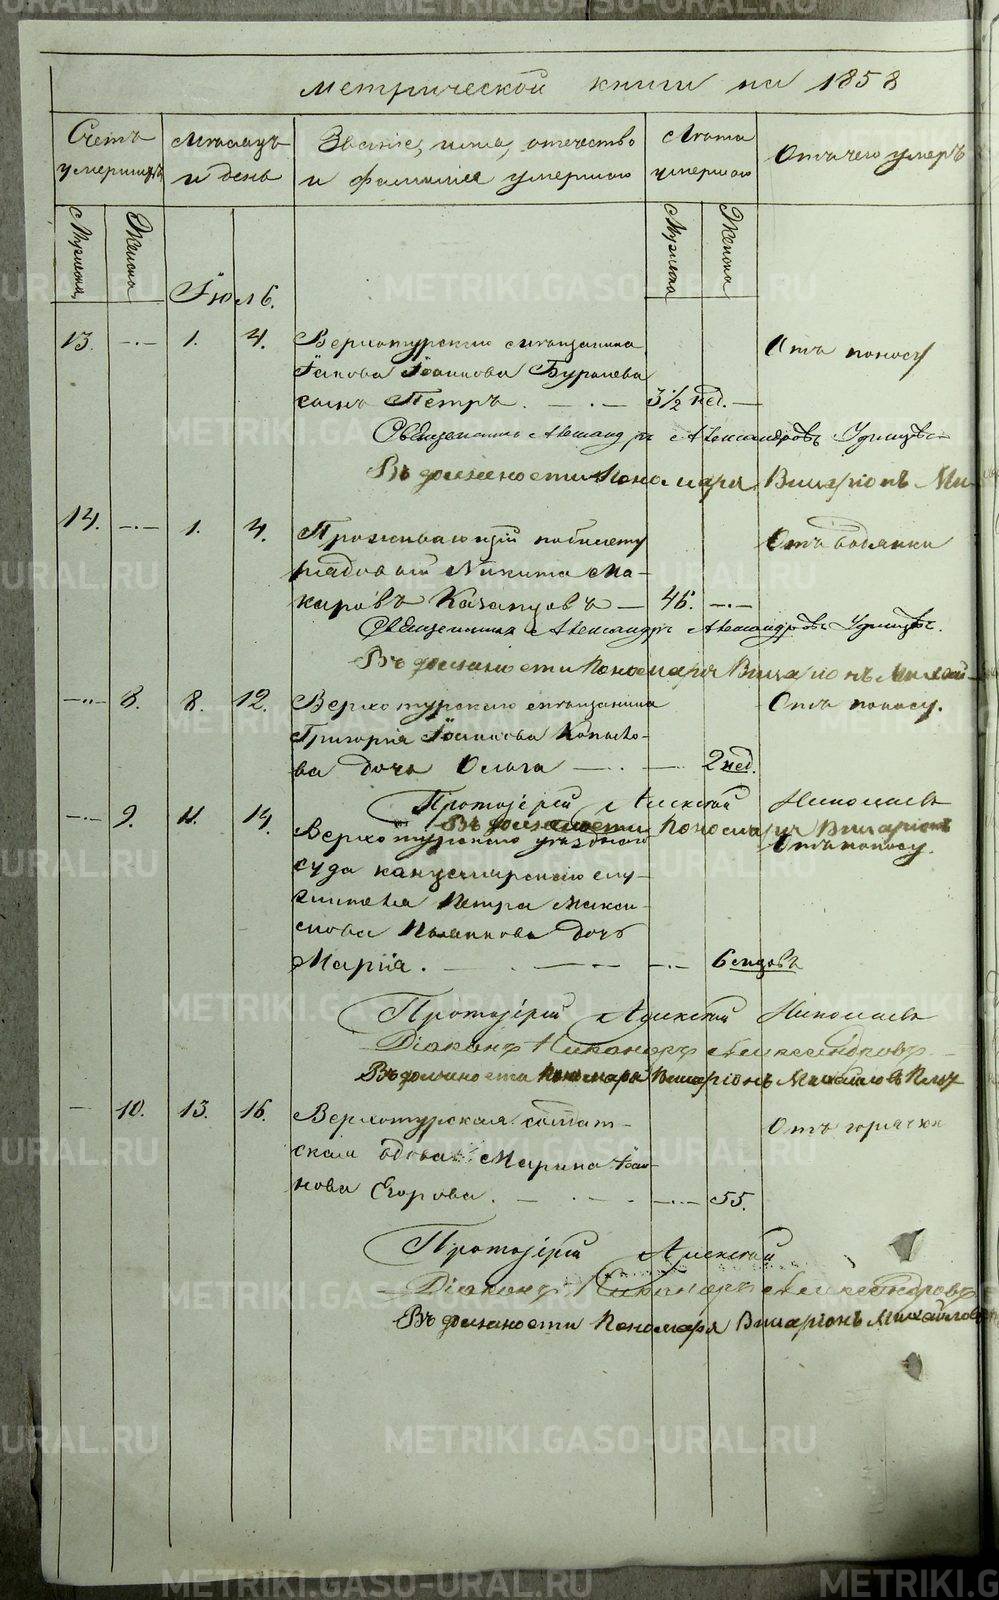 метрической книги на 1858
Счетъ умершихъ
Мѣсяцъ и день
Званіе, имя, отечество и фамилія умершаго
Лѣта умершаго
Отъ чего умеръ
Мужеска
Женска
Мужеска
Женска
Іюль.
13. 1. 4. Верхотурскаго мѣщанина Отъ поносу
Іакова Іоаннова
сынъ Петръ. 3½ нед.
Священникъ Александръ Александровъ
Въ должности Пономаря Виларіонъ
14. 1. 4. Проживающій по билету Отъ водянки
рядовой Никита Ма-
каровъ Казанцовъ 46.
Священникъ Александръ Александровъ
Въ должности Пономаря Виларіонъ
8. 8. 12. Верхотурскаго мѣщанина Отъ поносу.
Григорія Іоаннова Копыло-
ва дочь Ольга 2 нед.
Протоіерей Алексѣй Николаевъ
Въ должности Пономаря Виларіонъ
9. 11. 14. Верхотурскаго уѣзднаго Отъ поносу.
суда канцелярскаго слу-
жителя Петра Макси-
мова дочь
Марія. 6 мцовъ
Протоіерей Алексѣй Николаевъ
Діаконъ Никаноръ Александровъ
Въ должности Пономаря Виларіонъ Михайловъ
10. 13. 16. Верхотурская солдат- Отъ горячки
ская вдова Марина Іоан-
нова Егорова. 55.
Протоіерей Алексѣй
Діаконъ Никаноръ Александровъ
Въ должности Пономаря Виларіонъ Михайловъ
METRIKI.GASO-URAL.RU